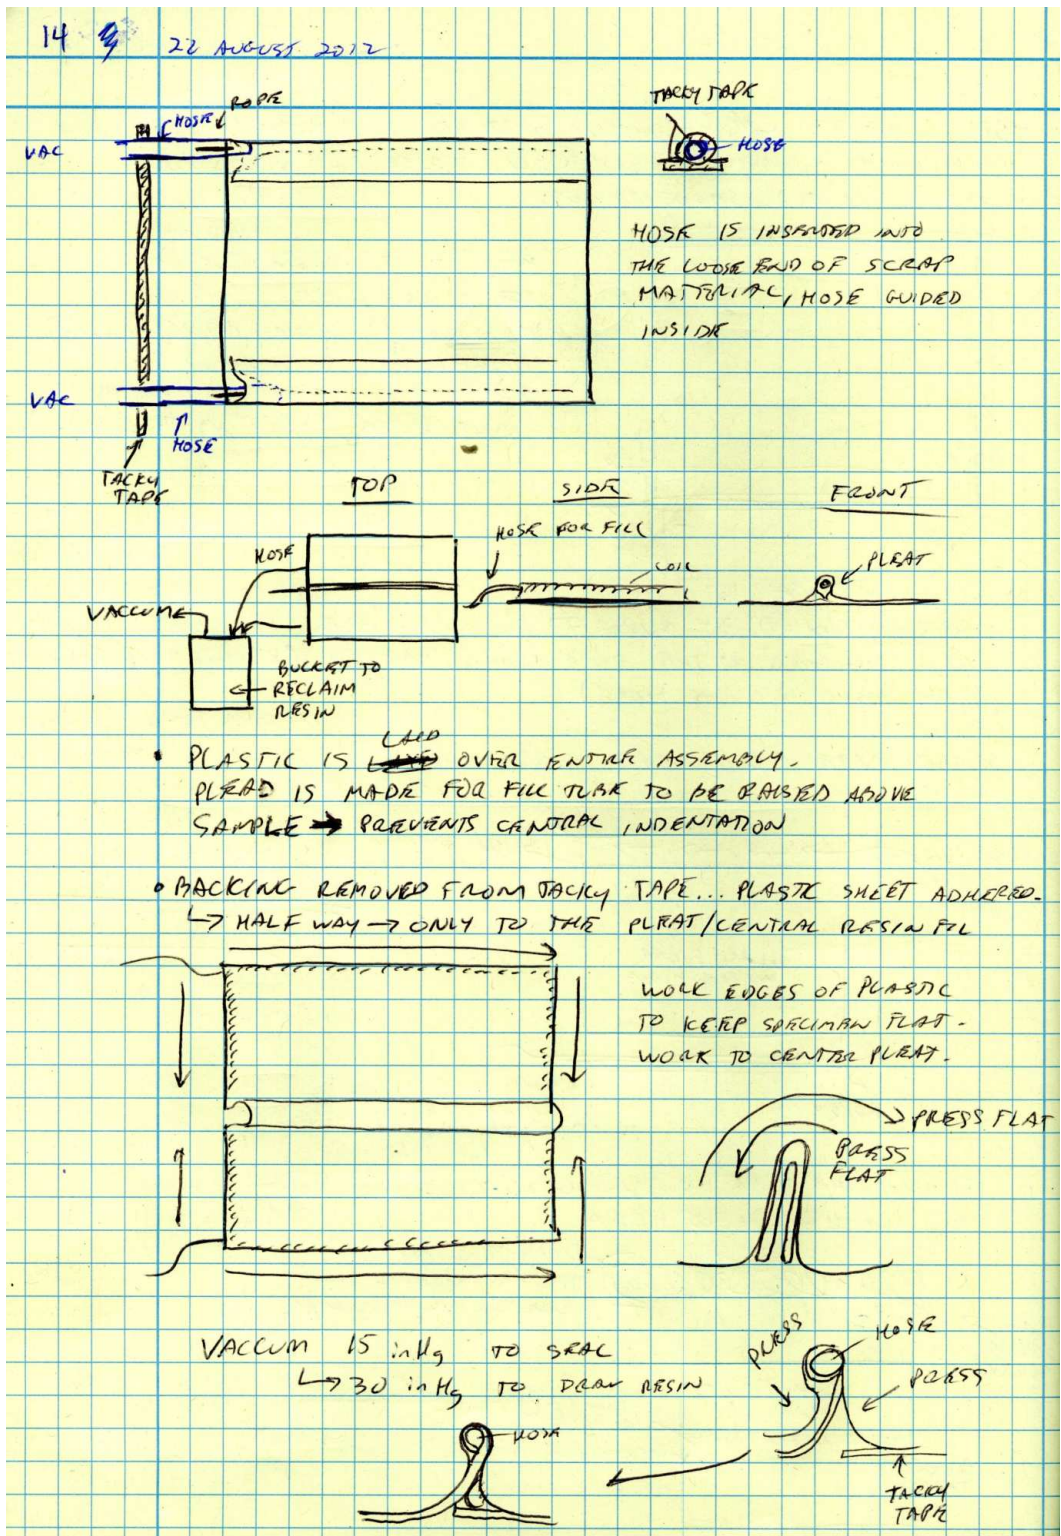 14
22 AUGUST 2012
ROPE
HOSE
VAC
TACKY TAPE
HOSE
HOSE IS INSERTED INTO
THE LOOSE END OF SCRAP
MATERIAL, HOSE GUIDED
INSIDE
VAC
HOSE
TACKY
TAPE
TOP
SIDE
FRONT
HOSE
HOSE FOR FILL
COIL
PLEAT
VACCUME
BUCKET TO
RECLAIM
RESIN
LAID
• PLASTIC IS OVER ENTIRE ASSEMBLY.
PLEAD IS MADE FOR FILL TUBE TO BE RAISED ABOVE
SAMPLE → PREVENTS CENTRAL INDENTATION
• BACKING REMOVED FROM TACKY TAPE... PLASTIC SHEET ADHERED.
↳ HALF WAY → ONLY TO THE PLEAT/CENTRAL RESIN FILL
WORK EDGES OF PLASTIC
TO KEEP SPECIMAN FLAT.
WORK TO CENTER PLEAT.
PRESS FLAT
PRESS
FLAT
VACCUM 15 inHg TO SEAL
↳ 30 inHg TO DRAW RESIN
PRESS
HOSE
PRESS
HOSE
TACKY
TAPE